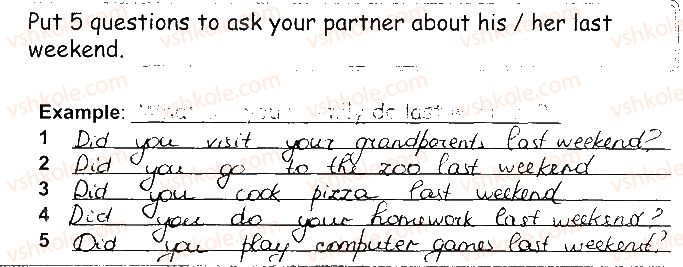 Put 5 questions to ask your partner about his / her last
weekend.
Example: What your family do last ?
1 Did you visit your grandparents last weekend?
2 Did you go to the zoo last weekend
3 Did you cook pizza last weekend
4 Did you do your homework last weekend?
5 Did you play computer games last weekend?